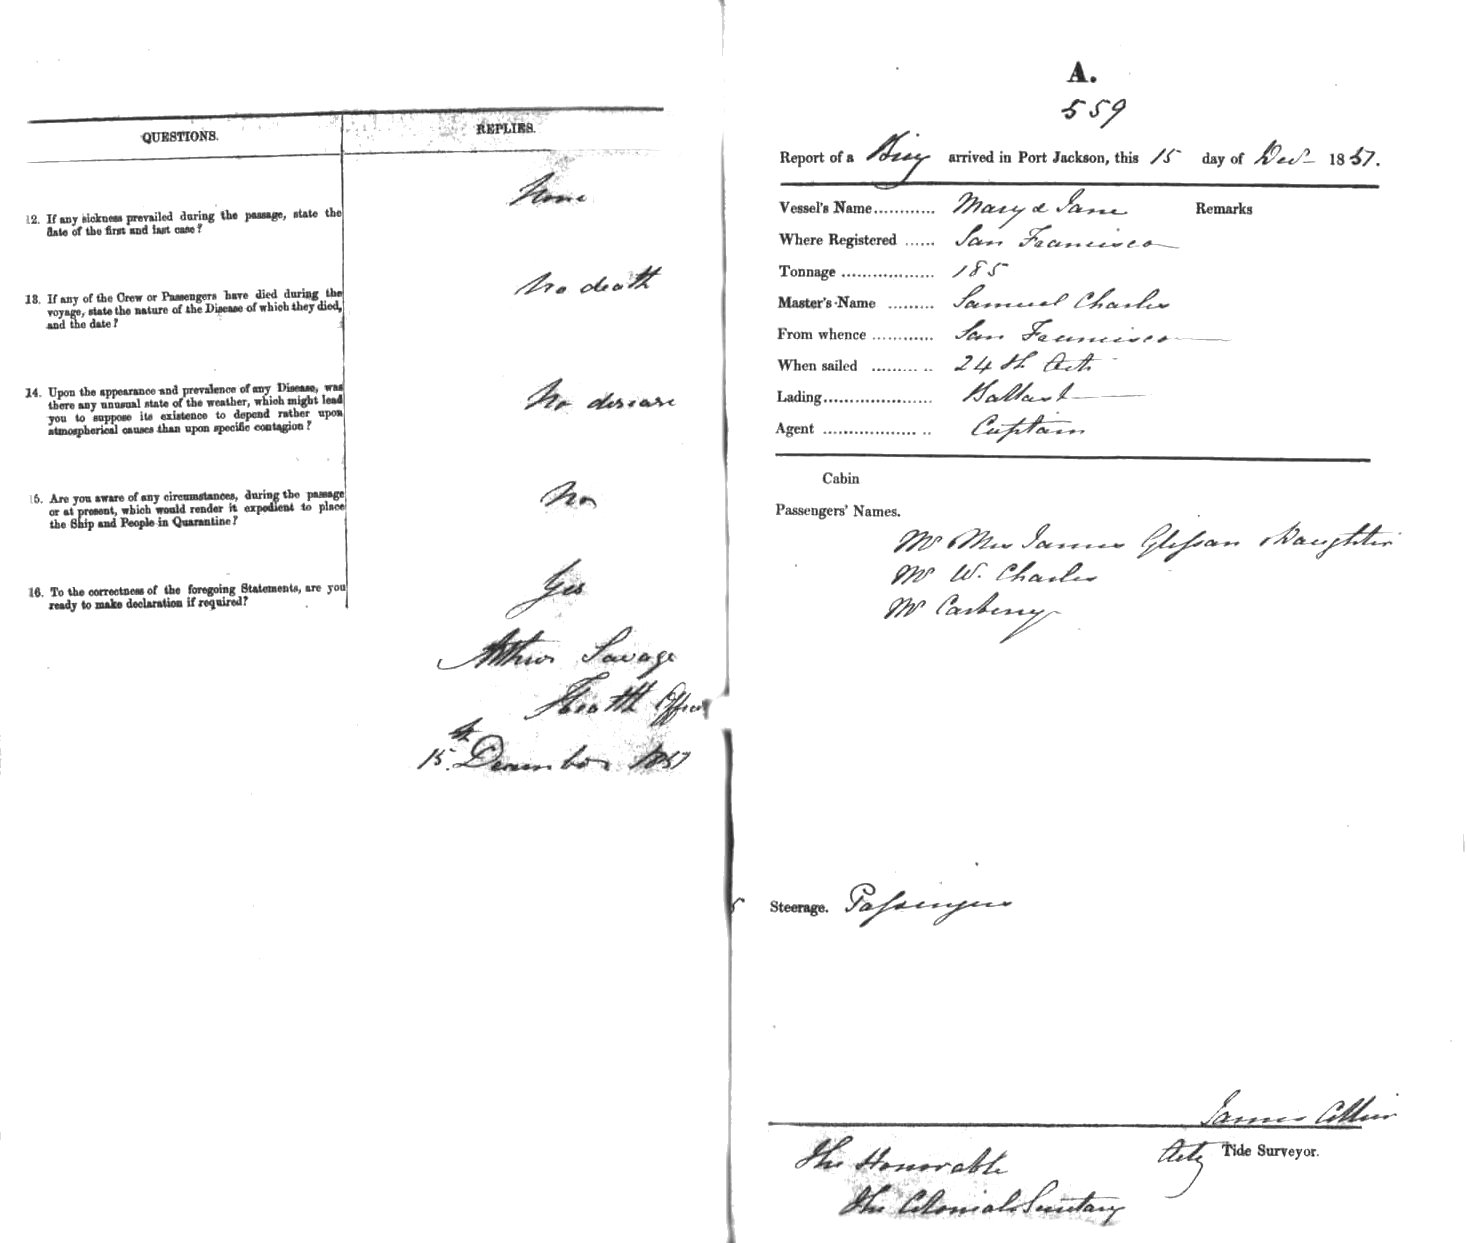 QUESTIONS.
REPLIES.
12. If any sickness prevailed during the passage, state the
date of the first and last case?
None
13. If any of the Crew or Passengers have died during the
voyage, state the nature of the Disease of which they died,
and the date?
No death
14. Upon the appearance and prevalence of any Disease, was
there any unusual state of the weather, which might lead
you to suppose its existence to depend rather upon
atmospherical causes than upon specific contagion?
No disease
15. Are you aware of any circumstances, during the passage
or at present, which would render it expedient to place
the Ship and People in Quarantine?
No
16. To the correctness of the foregoing Statements, are you
ready to make declaration if required?
Yes
Arthur Savage
Health Officer
15th December 1857
A.
559
Report of a Brig arrived in Port Jackson, this 15 day of Decr 1857.
Vessel's Name............ Mary & Jane Remarks
Where Registered ...... San Francisco
Tonnage .................. 185
Master's Name ......... Samuel Charles
From whence ............ San Francisco
When sailed ......... .. 24th Oct
Lading..................... Ballast
Agent .................. .. Captain
Cabin
Passengers' Names.
Mr & Mrs James Glissan & Daughter
Mr W. Charles
Mr Carberry
Steerage. Passengers
James Collier
Actg Tide Surveyor.
The Honorable
The Colonial Secretary